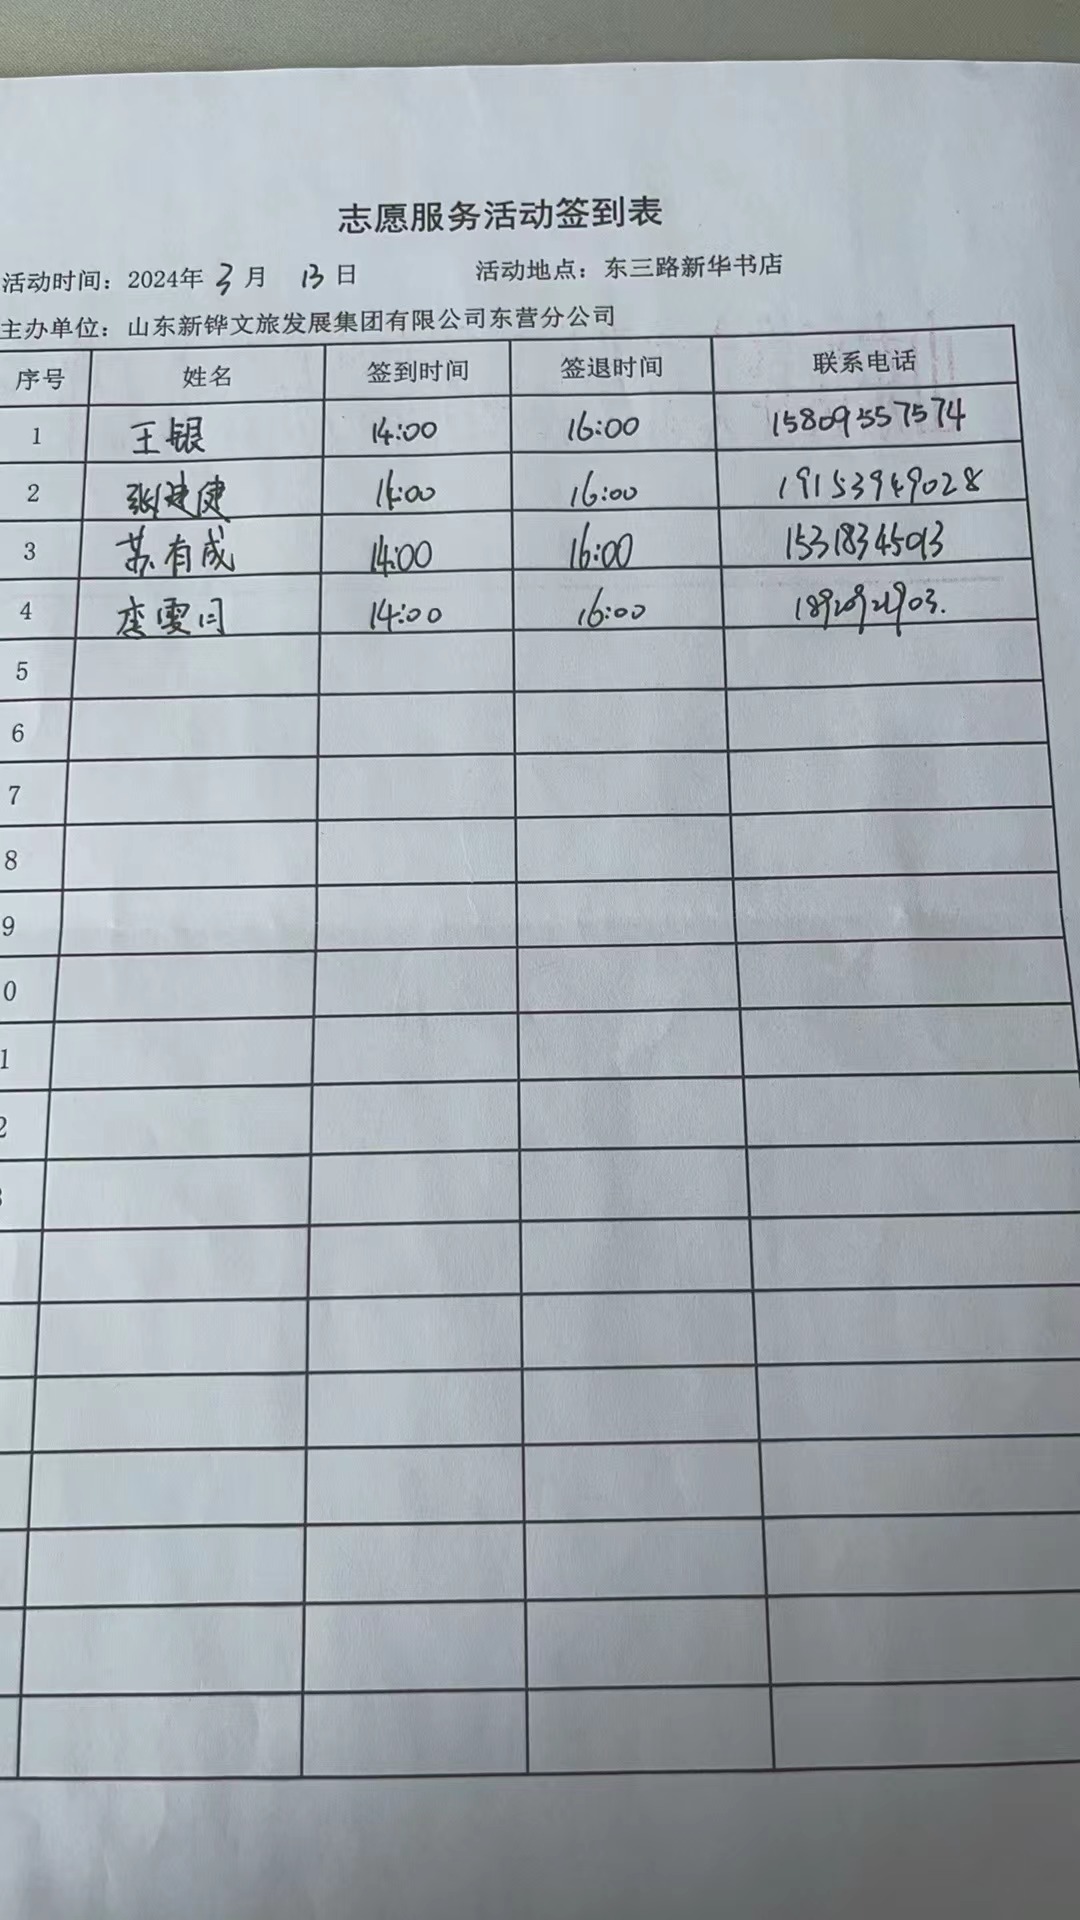 志愿服务活动签到表
活动时间：2024年 3月 13日 活动地点：东三路新华书店
主办单位：山东新铧文旅发展集团有限公司东营分公司
序号 姓名 签到时间 签退时间 联系电话
1 王银 14:00 16:00 15809557574
2 张建健 14:00 16:00 19153949028
3 苏有成 14:00 16:00 15318345013
4 14:00 16:00
5
6
7
8
9
0
1
2